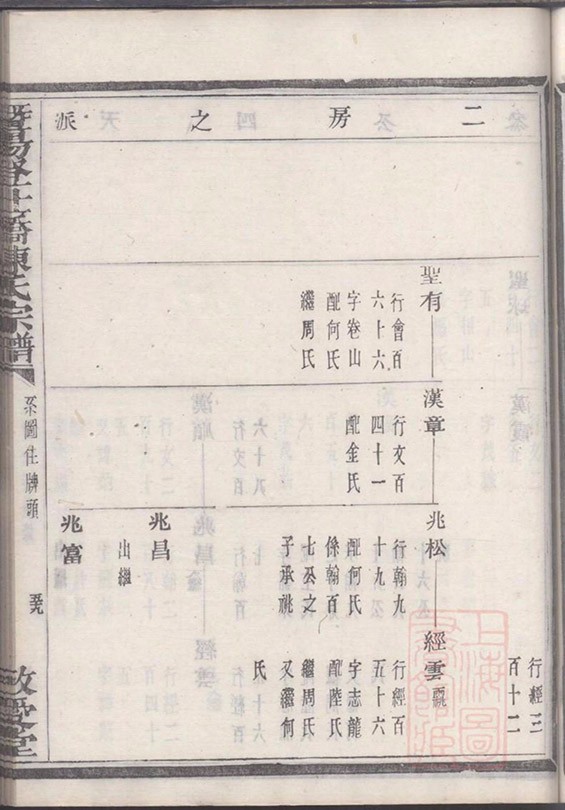 二房之派
行經三
百十二
聖有
行會百
六十六
字卷山
配何氏
繼周氏
漢章
行文百
四十一
配金氏
兆松
行翰九
十九
配何氏
係翰百
七公之
子承祧
兆昌
出繼
兆富
經雲
行經百
五十六
字志龍
配陸氏
繼周氏
又繼何
氏
陳氏宗譜
系圖住牌頭
敬愛堂
上海圖